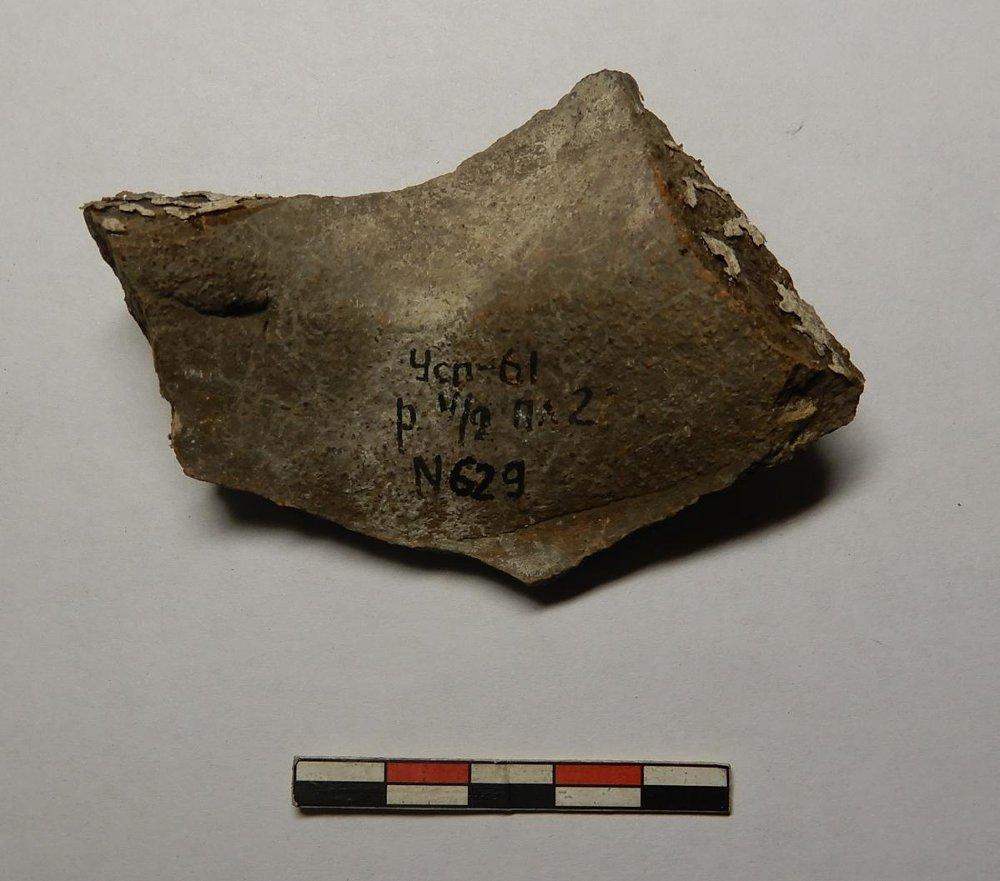 Усп-61
р V/2 пл 2
N629